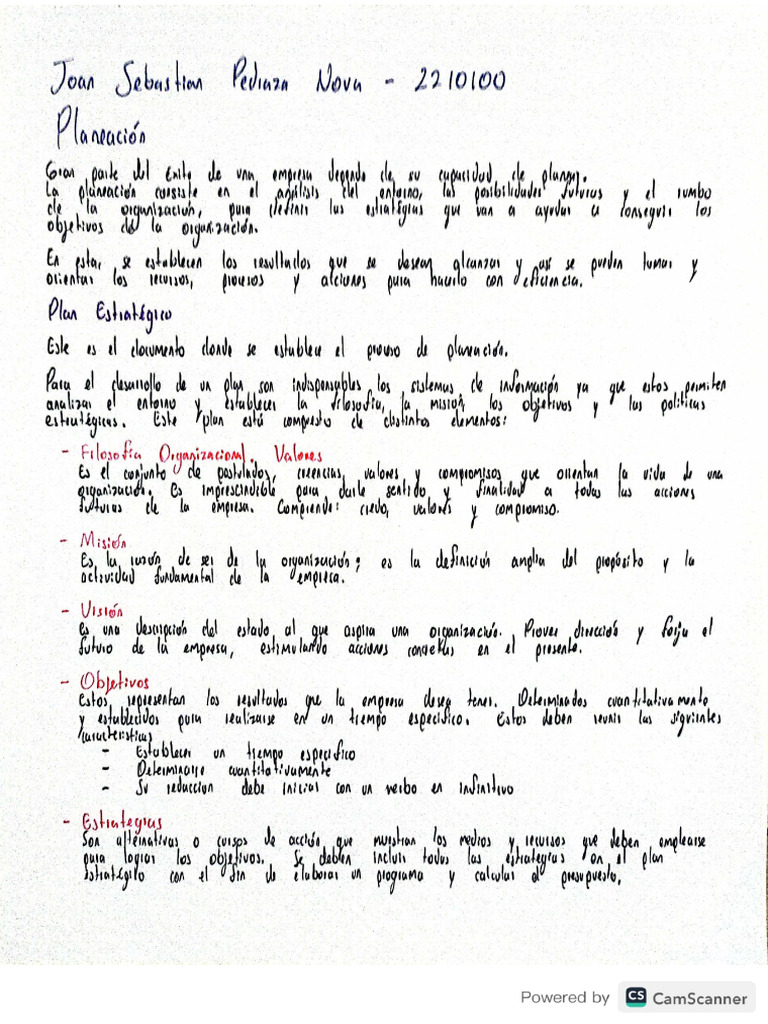 Joan Sebastian Pedraza Nova - 2210100
Planeación
Gran parte del éxito de una empresa depende de su capacidad de planear.
La planeación cosiste en el análisis del entorno, las posibilidades futuras y el rumbo
de la organización, para definir las estratégias que van a ayudar a conseguir los
objetivos de la organización.
En esta, se establecen los resultados que se desean alcanzar y así se pueden tomar y
orientar los recursos, procesos y acciones para hacerlo con eficiencia.
Plan Estratégico
Este es el documento donde se establece el proceso de planeación.
Para el desarrollo de un plan son indispensables los sistemas de información ya que estos permiten
analizar el entorno y establecer la filosofía, la misión, los objetivos y las políticas
estratégicas. Este plan está compuesto de distintos elementos:
- Filosofía Organizacional. Valores
Es el conjunto de postulados, creencias, valores y compromisos que orientan la vida de una
organización. Es imprescindible para darle sentido y finalidad a todas las acciones
futuras de la empresa. Comprende: credo, valores y compromiso.
- Misión
Es la razón de ser de la organización; es la definición amplia del propósito y la
actividad fundamental de la empresa.
- Visión
Es una descripción del estado al que aspira una organización. Provee dirección y forja el
futuro de la empresa, estimulando acciones concretas en el presente.
- Objetivos
Estos representan los resultados que la empresa desea tener. Determinados cuantitativamente
y establecidos para realizarse en un tiempo específico. Estos deben reunir las siguientes
características
- Establecer un tiempo específico
- Determinarse cuantitativamente
- Su redacción debe iniciar con un verbo en infinitivo
- Estrategias
Son alternativas o cursos de acción que muestran los medios y recursos que deben emplearse
para lograr los objetivos. Se deben incluir todas las estrategias en el plan
Estratégico con el fin de elaborar un programa y calcular el presupuesto.
Powered by CS CamScanner